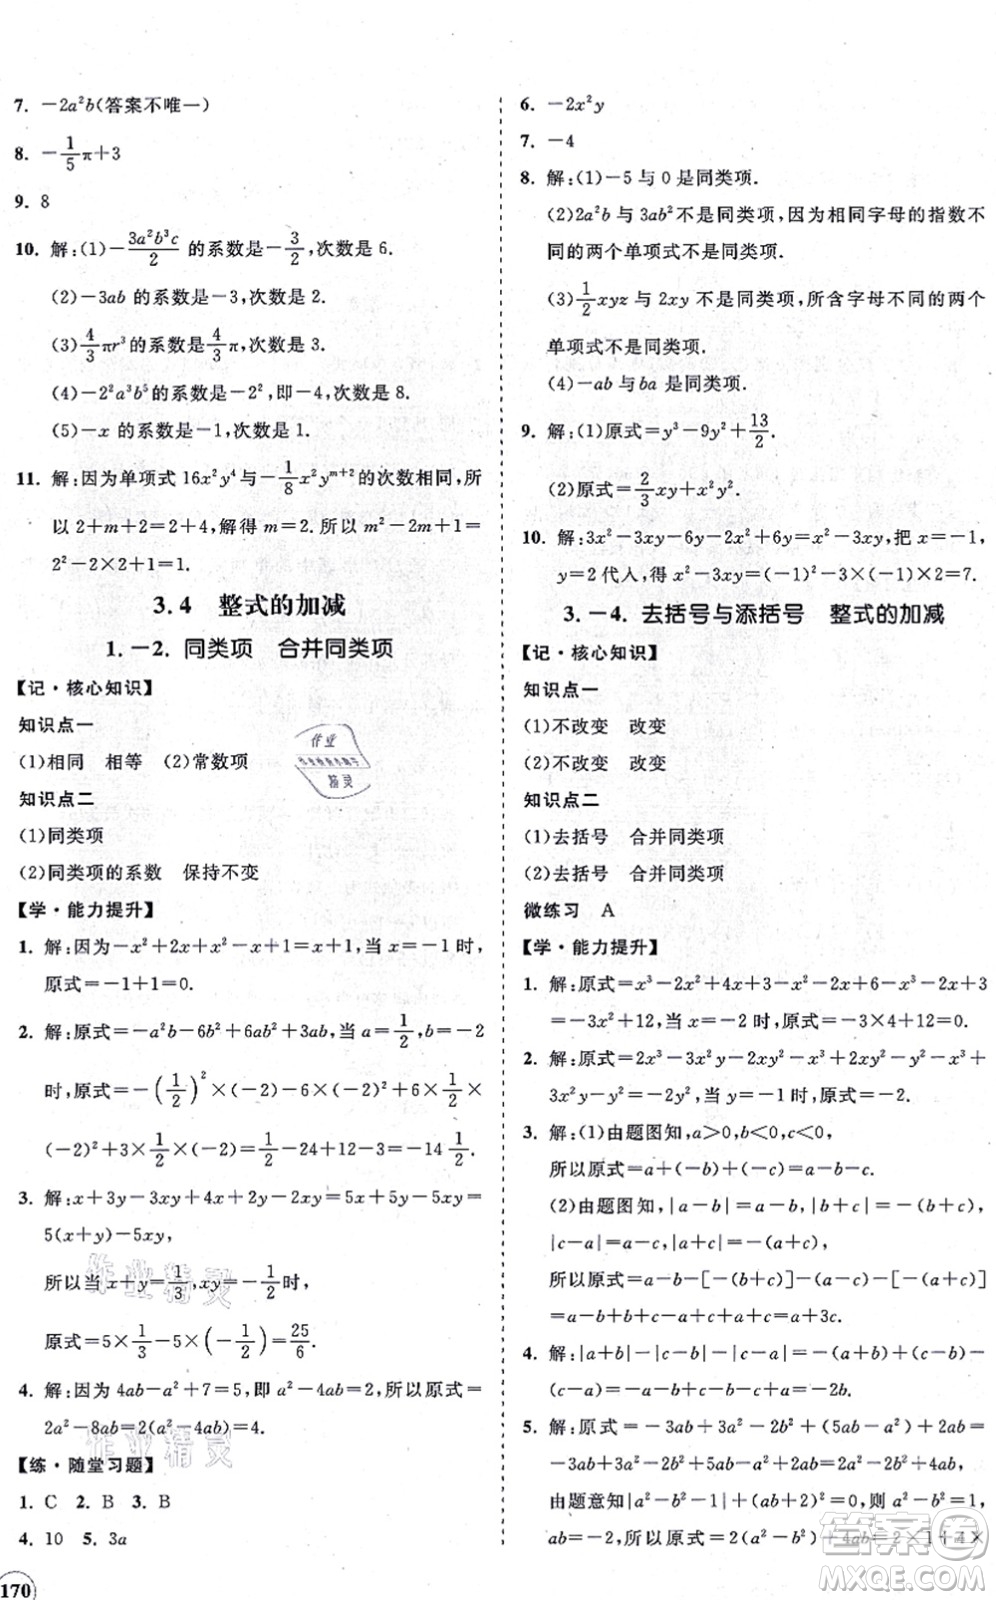 7. －2a²b(答案不唯一)
8. －1/5π＋3
9. 8
10. 解:(1)－3a²b³c/2 的系数是－3/2,次数是 6.
(2)－3ab 的系数是－3,次数是 2.
(3)4/3πr³的系数是4/3π,次数是 3.
(4)－2²a³b⁵的系数是－2²,即－4,次数是 8.
(5)－x 的系数是－1,次数是 1.
11. 解:因为单项式 16x²y⁴与－1/8x²yᵐ⁺²的次数相同,所
以 2＋m＋2＝2＋4,解得 m＝2. 所以 m²－2m＋1＝
2²－2×2＋1＝1.
3.4 整式的加减
1.－2. 同类项 合并同类项
【记·核心知识】
知识点一
(1)相同 相等 (2)常数项
知识点二
(1)同类项
(2)同类项的系数 保持不变
【学·能力提升】
1. 解:因为－x²＋2x＋x²－x＋1＝x＋1,当 x＝－1 时,
原式＝－1＋1＝0.
2. 解:原式＝－a²b－6b²＋6ab²＋3ab,当 a＝1/2,b＝－2
时,原式＝－(1/2)²×(－2)－6×(－2)²＋6×1/2×
(－2)²＋3×1/2×(－2)＝1/2－24＋12－3＝－14 1/2.
3. 解:x＋3y－3xy＋4x＋2y－2xy＝5x＋5y－5xy＝
5(x＋y)－5xy,
所以当 x＋y＝1/3,xy＝－1/2时,
原式＝5×1/3－5×(－1/2)＝25/6.
4. 解:因为 4ab－a²＋7＝5,即 a²－4ab＝2,所以原式＝
2a²－8ab＝2(a²－4ab)＝4.
【练·随堂习题】
1. C 2. B 3. B
4. 10 5. 3a
170
6. －2x²y
7. －4
8. 解:(1)－5 与 0 是同类项.
(2)2a²b 与 3ab²不是同类项,因为相同字母的指数不
同的两个单项式不是同类项.
(3)1/2xyz 与 2xy 不是同类项,所含字母不同的两个
单项式不是同类项.
(4)－ab 与 ba 是同类项.
9. 解:(1)原式＝y³－9y²＋13/2.
(2)原式＝2/3xy＋x²y².
10. 解:3x²－3xy－6y－2x²＋6y＝x²－3xy,把 x＝－1,
y＝2 代人,得 x²－3xy＝(－1)²－3×(－1)×2＝7.
3.－4. 去括号与添括号 整式的加减
【记·核心知识】
知识点一
(1)不改变 改变
(2)不改变 改变
知识点二
(1)去括号 合并同类项
(2)去括号 合并同类项
微练习 A
【学·能力提升】
1. 解:原式＝x³－2x²＋4x＋3－x²－2x＋6－x³－2x＋3
＝－3x²＋12,当 x＝－2 时,原式＝－3×4＋12＝0.
2. 解:原式＝2x³－3x²y－2xy²－x³＋2xy²－y²－x³＋
3x²y－y²＝－2y²,当 y＝－1 时,原式＝－2.
3. 解:(1)由题图知,a＞0,b＜0,c＜0,
所以原式＝a＋(－b)－(－c)＝a－b＋c.
(2)由题图知,|a－b|＝a－b,|b＋c|＝－(b＋c),
|c－a|＝－(c－a),
所以原式＝a－b－[－(b＋c)]－[－(c－a)]＋[－(b＋c)]
＝a－b＋b＋c＋c－a＋a－b－c＝a－b＋c.
4. 解:|a＋b|－|b－c|＝－(a＋b)－(b－c)＝－a－b－
b＋c＝－a－2b＋c.
5. 解:原式＝a²－3ab＋2b²＋(5ab－a²)＋a²＋2ab＝
作业精灵
答案圈
MXQE.COM